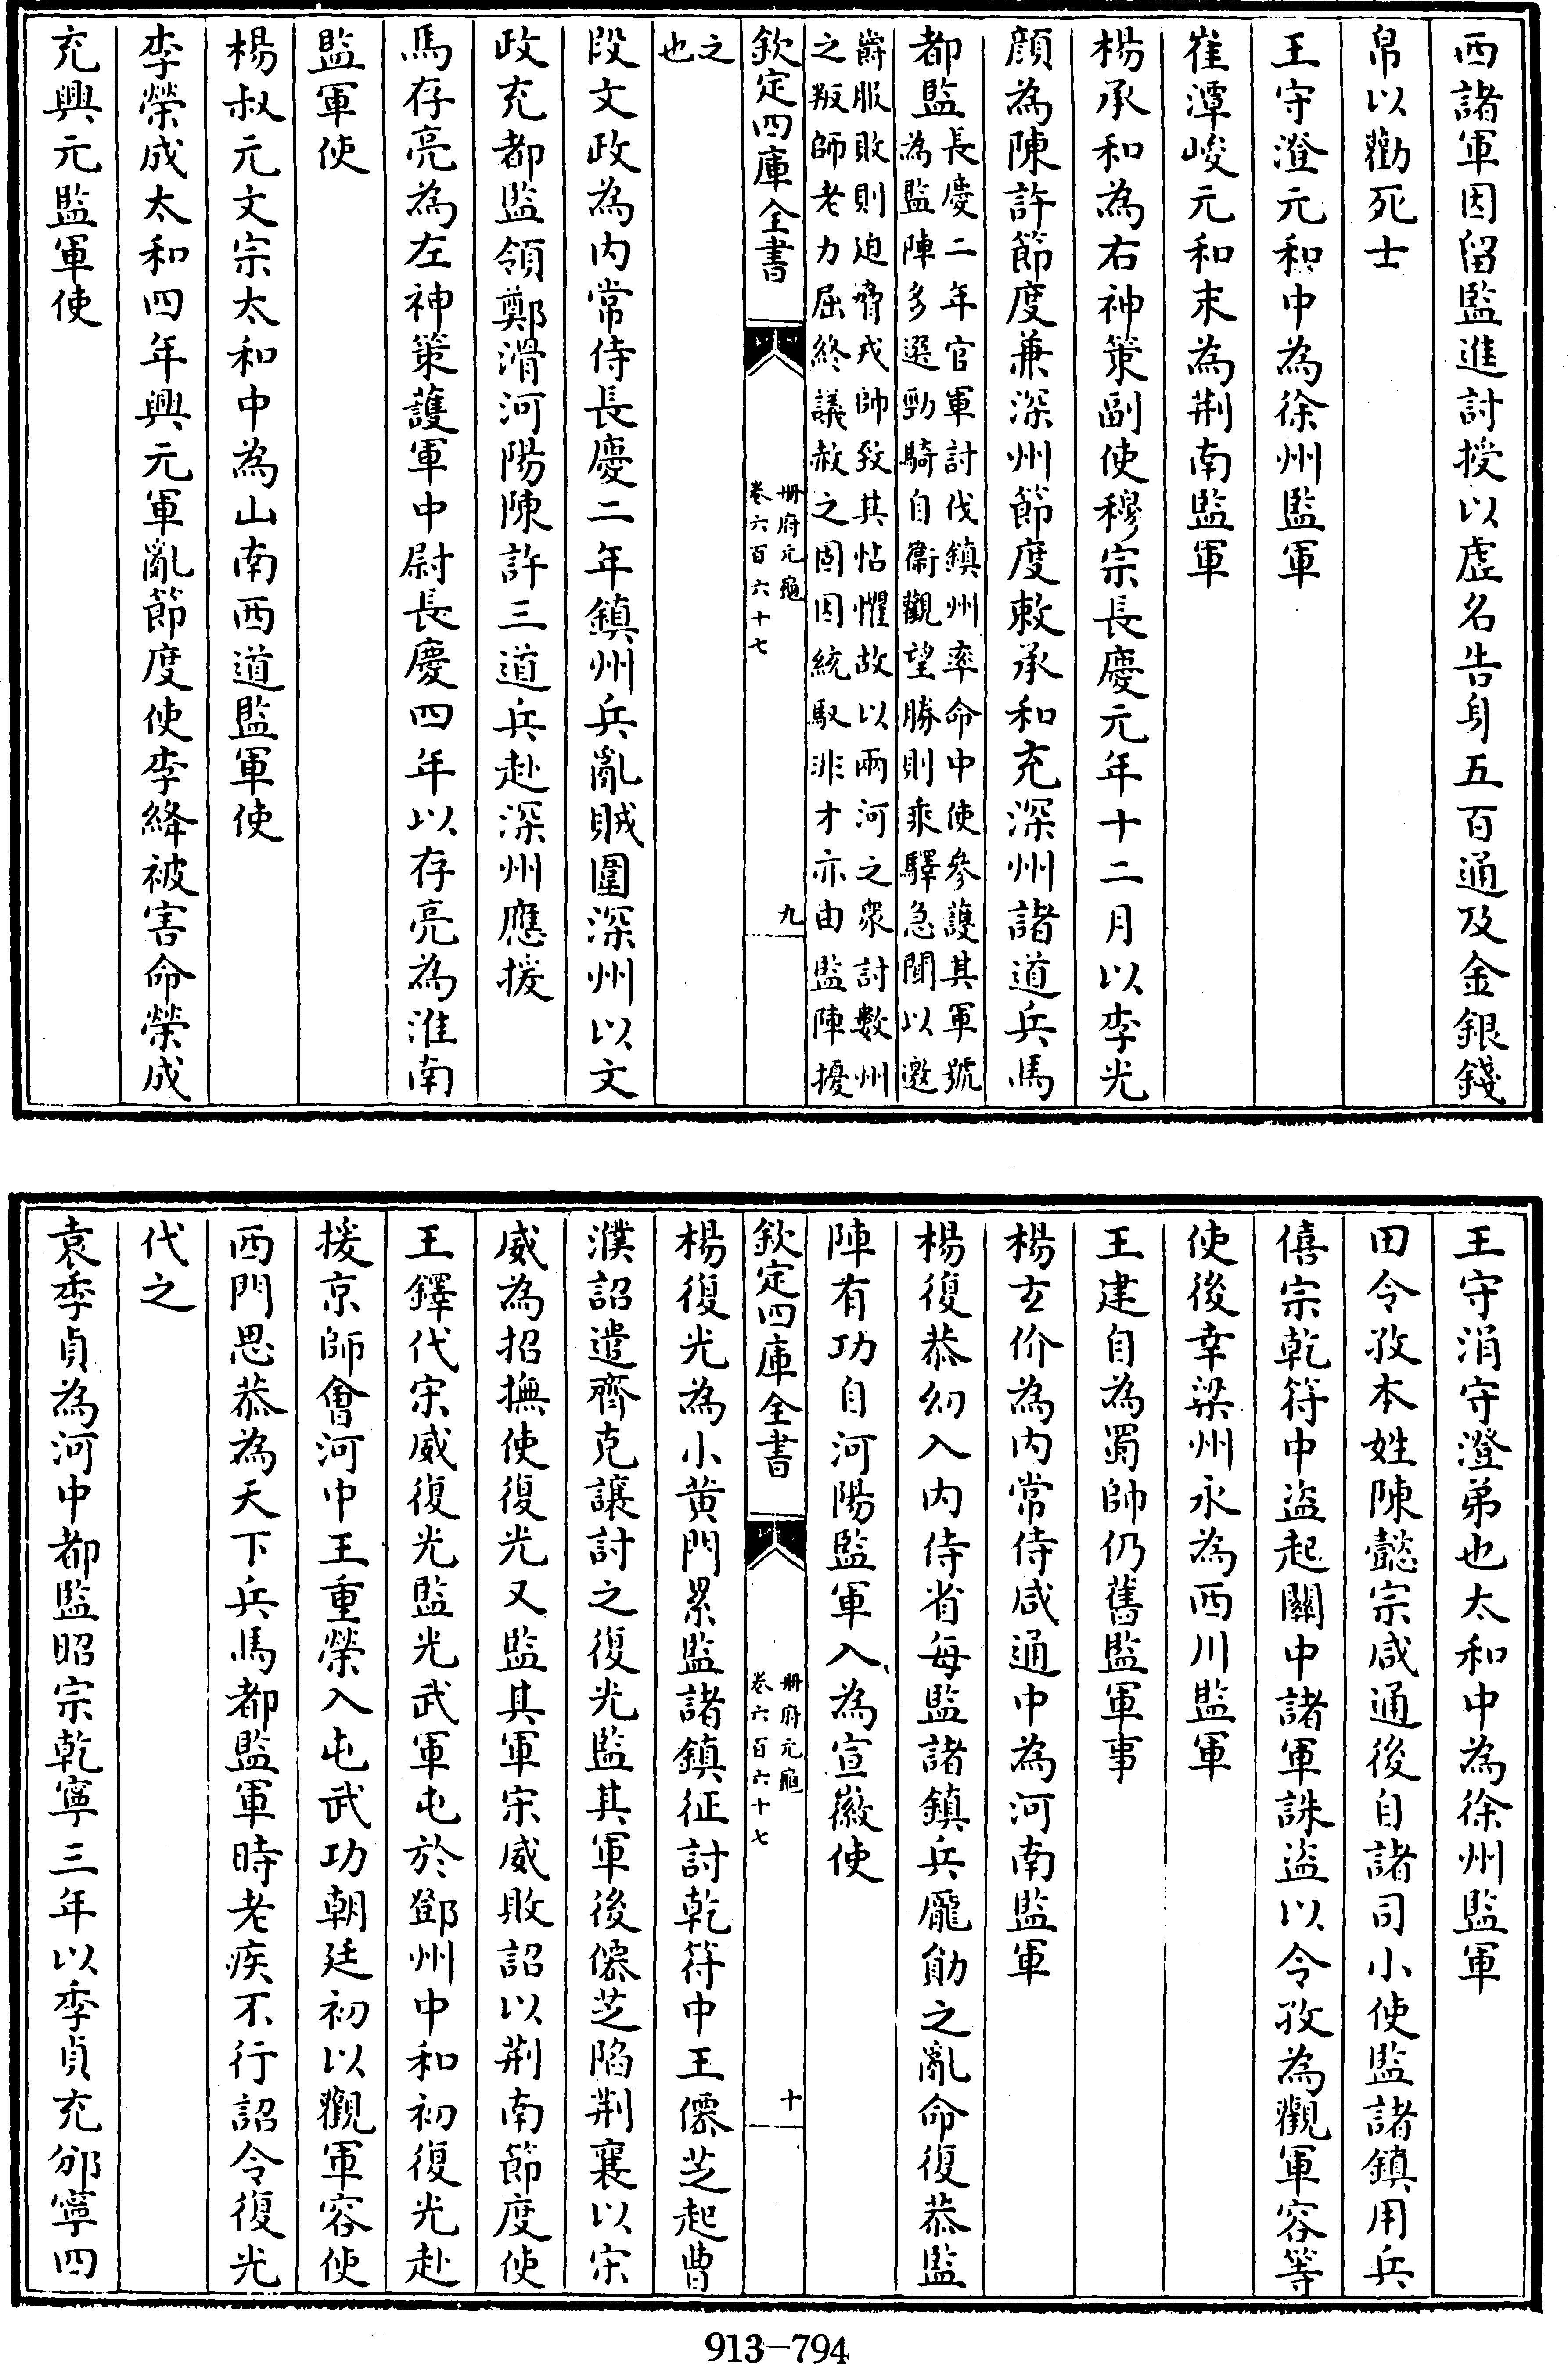 西諸軍因留監進討授以虚名告身五百通及金銀錢
帛以勸死士
王守澄元和中為徐州監軍
崔潭峻元和末為荆南監軍
楊承和為右神策副使穆宗長慶元年十二月以李光
顔為陳許節度兼深州節度敕承和充深州諸道兵馬
都監長慶二年官軍討伐鎮州率命中使參護其軍號
為監陣多選勁騎自衞觀望勝則乘驛急聞以邀
爵服敗則迫脅戎帥致其怗懼故以兩河之衆討數州
之叛師老力屈終議赦之固因統馭非才亦由監陣擾
欽定四庫全書
冊府元龜
卷六百六十七
九
之
也
段文政為内常侍長慶二年鎮州兵亂賊圍深州以文
政充都監領鄭滑河陽陳許三道兵赴深州應援
馬存亮為左神策護軍中尉長慶四年以存亮為淮南
監軍使
楊叔元文宗太和中為山南西道監軍使
李榮成太和四年興元軍亂節度使李絳被害命榮成
充興元監軍使
王守涓守澄弟也太和中為徐州監軍
田令孜本姓陳懿宗咸通後自諸司小使監諸鎮用兵
僖宗乾符中盜起關中諸軍誅盜以令孜為觀軍容等
使後幸梁州永為西川監軍
王建自為蜀帥仍舊監軍事
楊玄价為内常侍咸通中為河南監軍
楊復恭幼入内侍省每監諸鎮兵龐勛之亂命復恭監
陣有功自河陽監軍入為宣徽使
欽定四庫全書
冊府元龜
卷六百六十七
十
楊復光為小黄門累監諸鎮征討乾符中王僊芝起曹
濮詔遣齊克讓討之復光監其軍後僊芝陷荆襄以宋
威為招撫使復光又監其軍宋威敗詔以荆南節度使
王鐸代宋威復光監光武軍屯於鄧州中和初復光赴
援京師會河中王重榮入屯武功朝廷初以觀軍容使
西門思恭為天下兵馬都監軍時老疾不行詔令復光
代之
袁季貞為河中都監昭宗乾寧三年以季貞充邠寧四
913-794